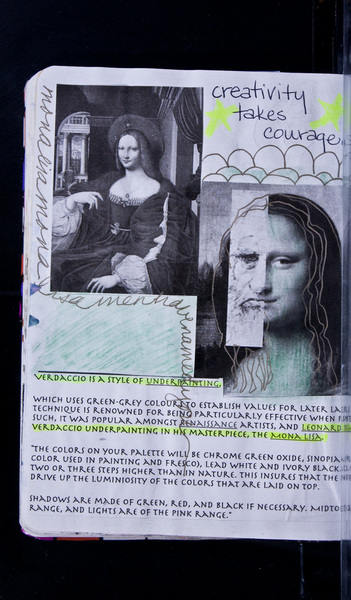 creativity
takes
courage.
mona lisa mona
lisa men have named you
VERDACCIO IS A STYLE OF UNDERPAINTING,
WHICH USES GREEN-GREY COLOUR TO ESTABLISH VALUES FOR LATER
TECHNIQUE IS RENOWNED FOR BEING PARTICULARLY EFFECTIVE WHEN
SUCH, IT WAS POPULAR AMONGST RENAISSANCE ARTISTS, AND LEONARD
VERDACCIO UNDERPAINTING IN HIS MASTERPIECE, THE MONA LISA.
"THE COLORS ON YOUR PALETTE WILL BE CHROME GREEN OXIDE, SINOPIA
COLOR USED IN PAINTING AND FRESCO), LEAD WHITE AND IVORY BLACK.
TWO OR THREE STEPS HIGHER THAN IN NATURE. THIS INSURES THAT THE
DRIVE UP THE LUMINIOSITY OF THE COLORS THAT ARE LAID ON TOP.
SHADOWS ARE MADE OF GREEN, RED, AND BLACK IF NECESSARY. MIDTO
RANGE, AND LIGHTS ARE OF THE PINK RANGE."